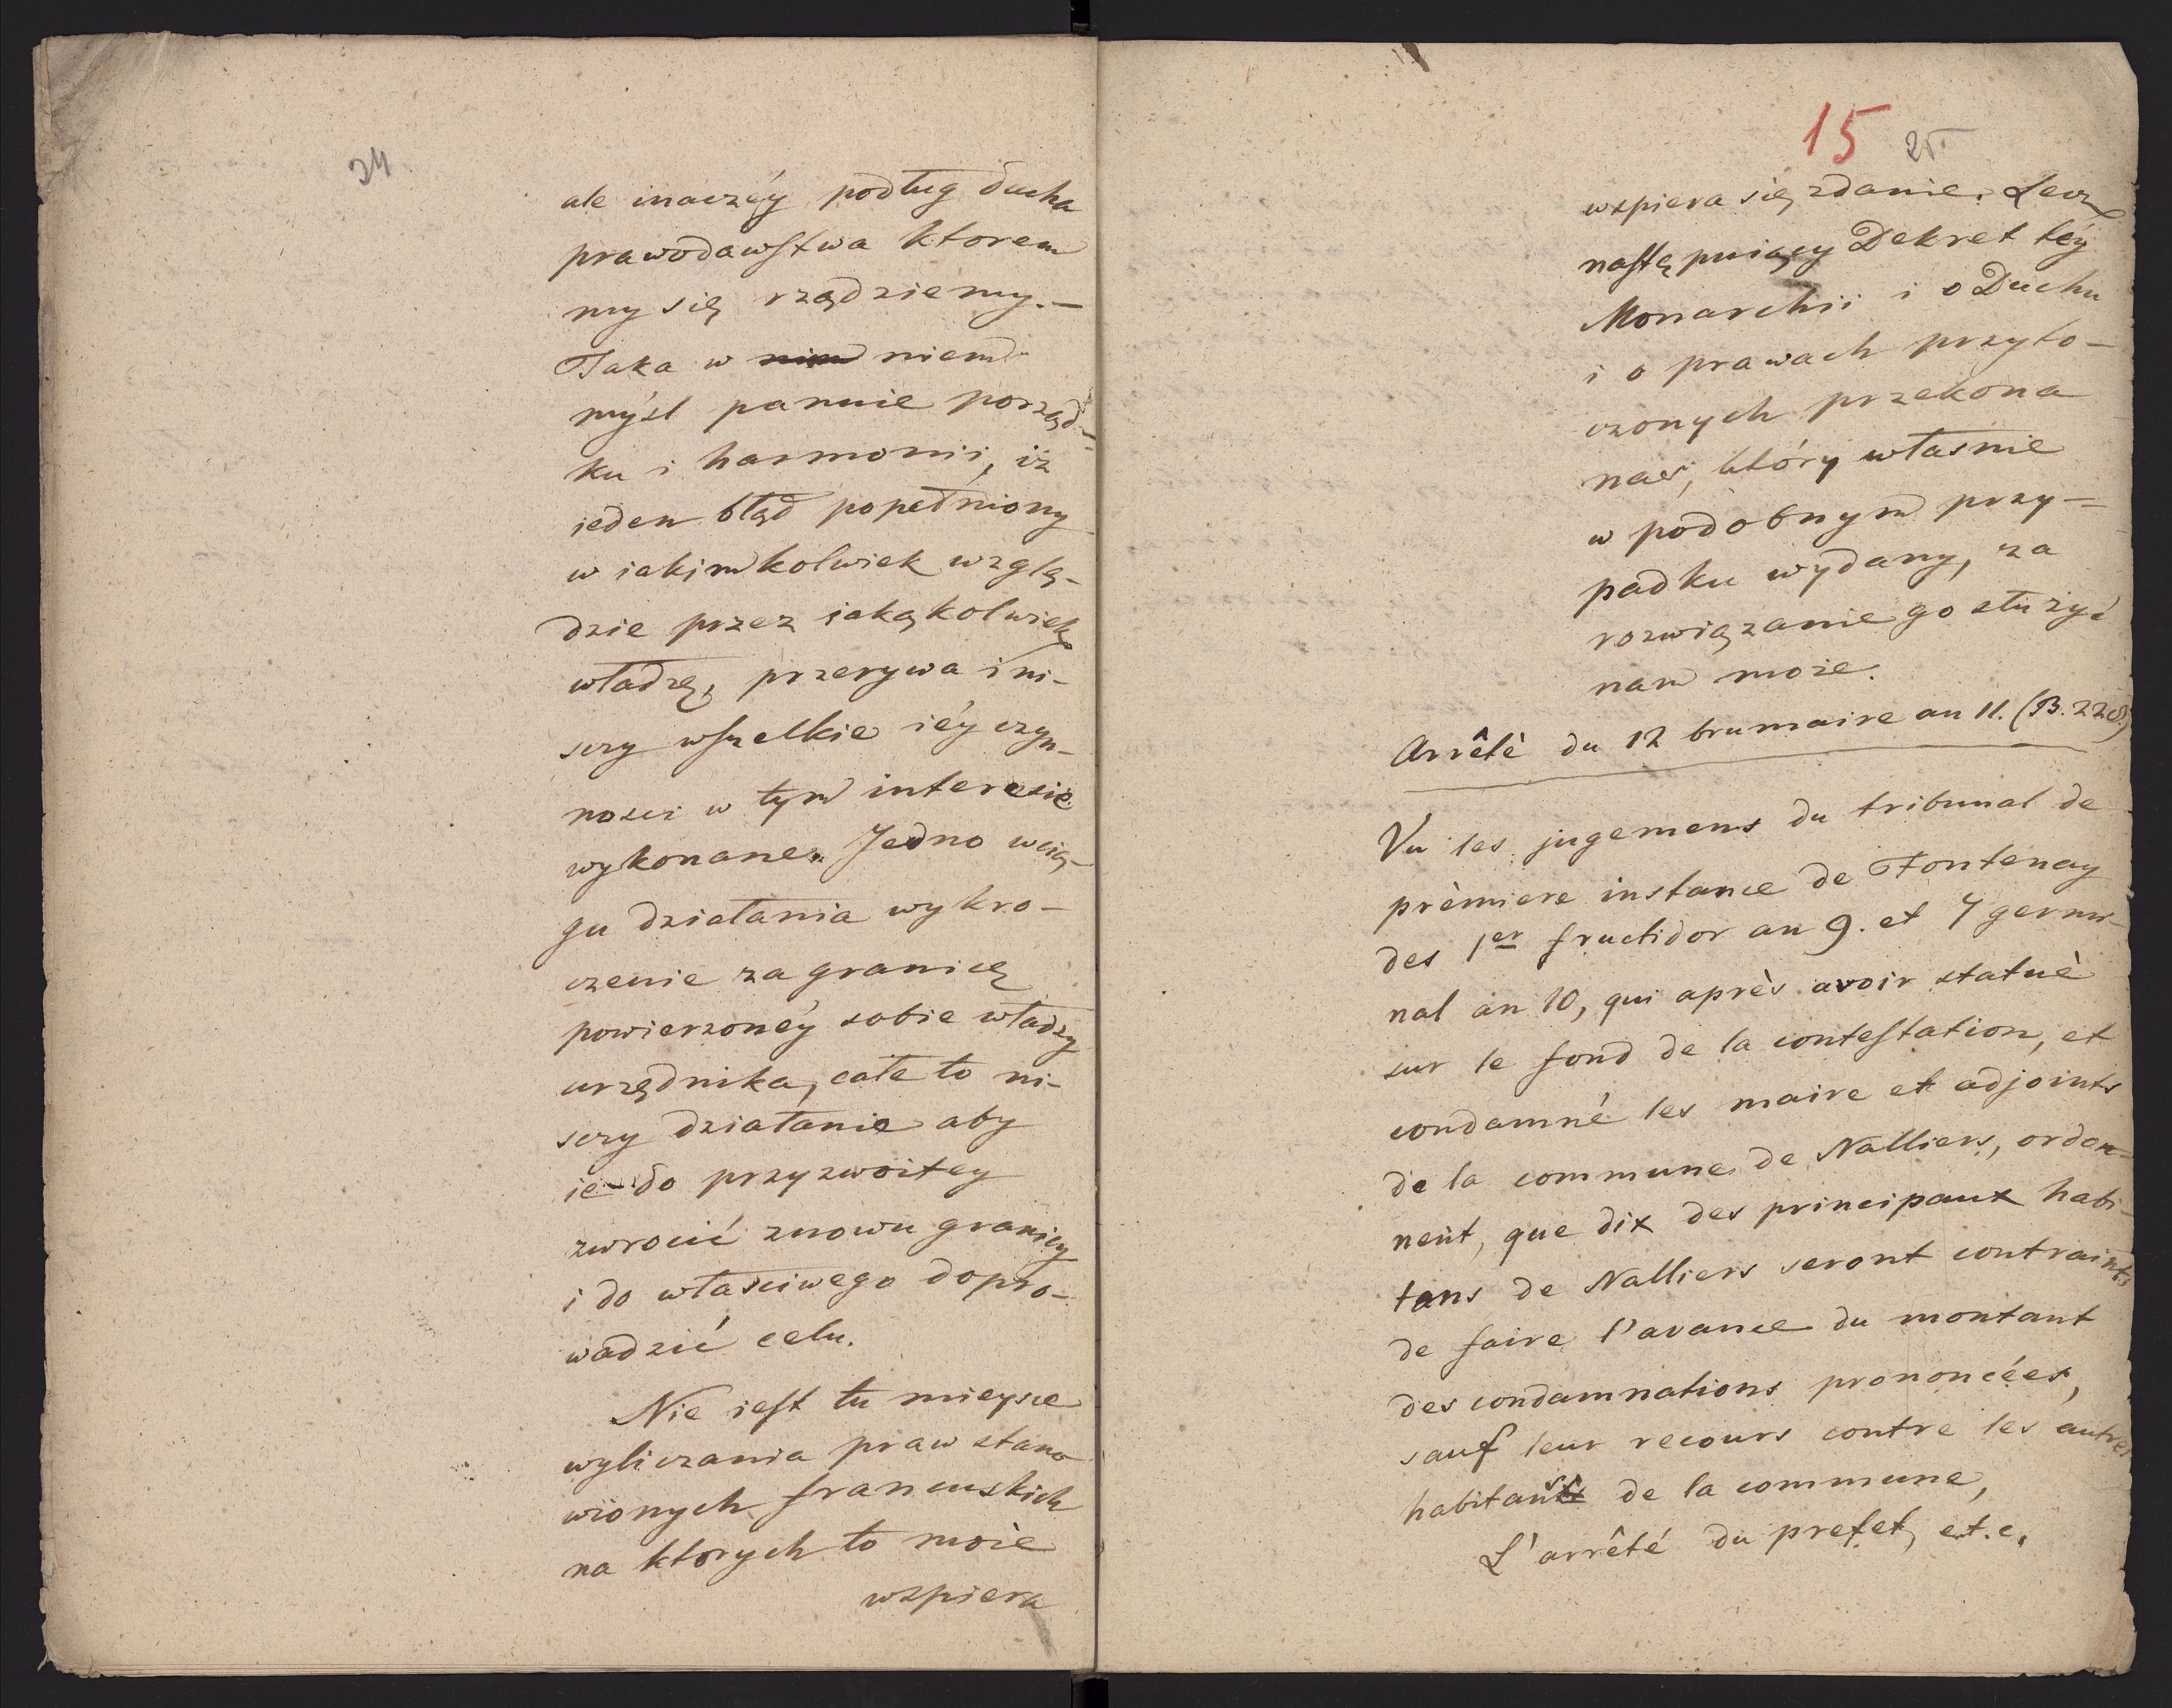 24
ale inaczéy podług ducha
prawodawstwa ktorem
my się rządziemy.—
Taka w nim niem
myśl pannie porząd-
ku i harmonii, iż
ieden błąd popełniony
w iakimkolwiek wzglę-
dzie przez iakąkolwiek
władzę, przerywa i ni-
sczy wszelkie iéy czyn-
nosci w tym interesie
wykonane. Jedno w cią-
gu działania wykro-
czenie za granicę
powierzonéy sobie władzy
urzędnika, całe to ni-
sczy działanie aby
ie do przyzwoitey
zwrocić znowu granicy
i do właściwego dopro-
wadzić celu.
Nie iest tu mieysce
wyliczania praw stano
wionych francuskich
na ktorych to moie
wspiera
15 25.
wspiera się zdanie. Lecz
następuiący Dekret téy
Monarchii i o Duchu
i o prawach przyto-
czonych przekona
nas, który własnie
w podobnym przy-
padku wydany, za
rozwiązanie go służyć
nam może.
Arrêtè du 12 brumaire an 11. (B. 228.)
Vu les jugemens du tribunal de
prèmiere instance de Fontenay
des 1er fructidor an 9. et 7 germi-
nal an 10, qui après avoir statuè
sur le fond de la contestation, et
condamné les maire et adjoints
de la commune de Nalliers, ordon-
nent, que dix des principaux habi-
tans de Nalliers seront contraints
de faire l'avance du montant
des condamnations prononcées,
sauf leur recours contre les autres
habitans de la commune,
L'arrêté du prefet, et.c.